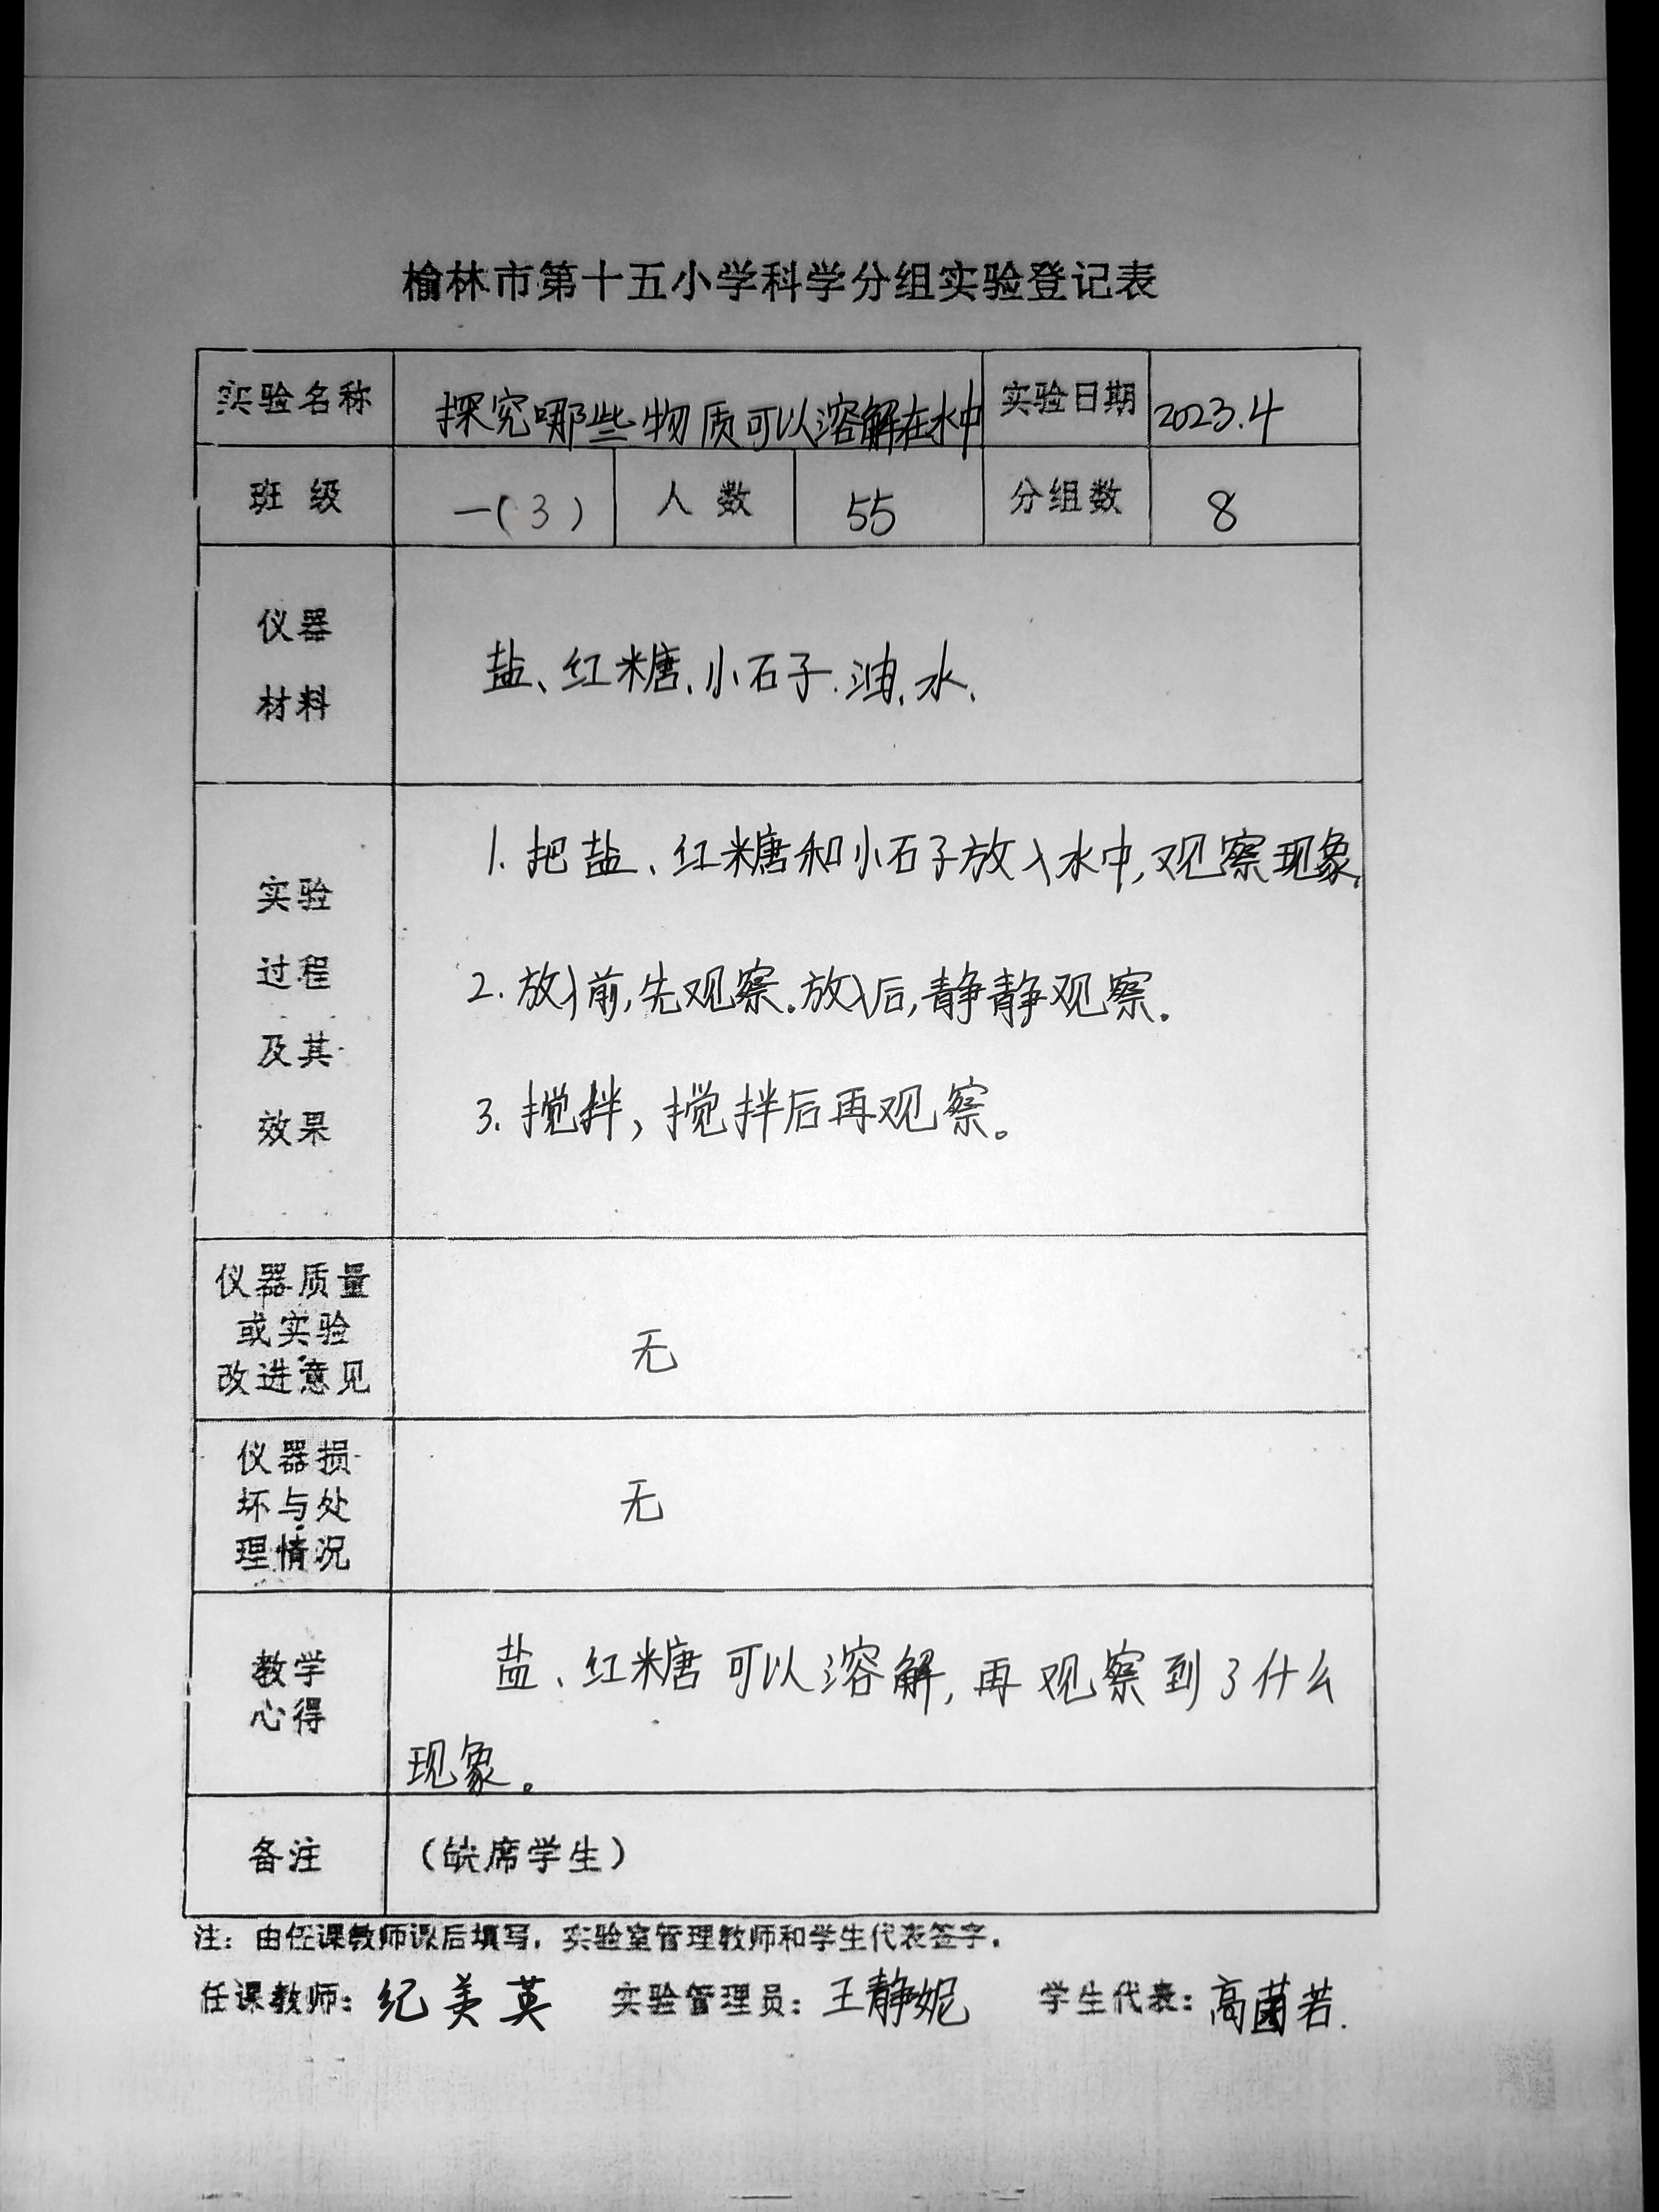 榆林市第十五小学科学分组实验登记表
实验名称 探究哪些物质可以溶解在水中 实验日期 2023.4
班级 一(3) 人数 55 分组数 8
仪器
材料
盐、红糖、小石子、油、水、
实验
过程
及其
效果
1. 把盐、红糖和小石子放入水中,观察现象,
2. 放入前,先观察.放入后,静静观察.
3. 搅拌,搅拌后再观察。
仪器质量
或实验
改进意见
无
仪器损
坏与处
理情况
无
教学
心得
盐、红糖可以溶解,再观察到了什么
现象。
备注 (缺席学生)
注：由任课教师课后填写，实验室管理教师和学生代表签字。
任课教师：纪美英 实验管理员：王静妮 学生代表：高茵若.